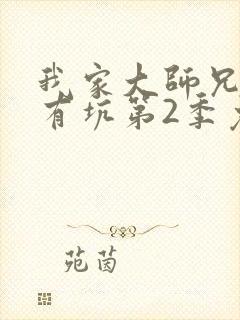 我家大師兄
有坑第2季
苑茵